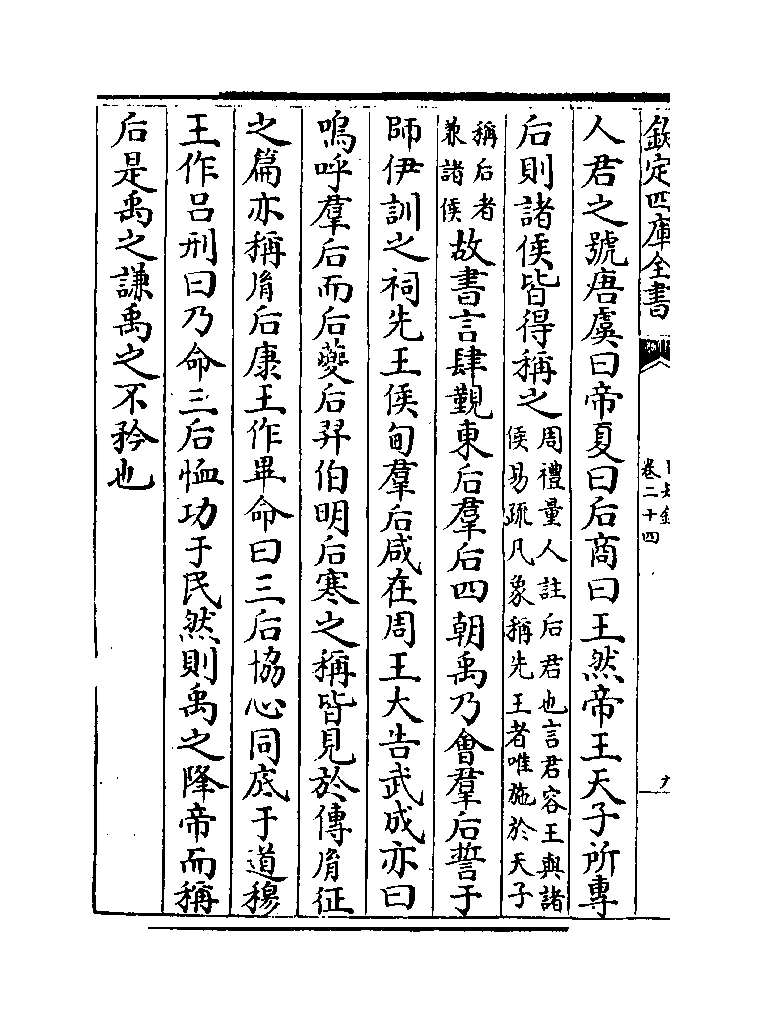 欽定四庫全書
卷二十四
人君之號唐虞曰帝夏曰后商曰王然帝王天子所專
后則諸侯皆得稱之周禮量人註后君也言君容王與諸
侯易疏凡象稱先王者唯施於天子
稱后者
兼諸侯故書言肆覲東后羣后四朝禹乃會羣后誓于
師伊訓之祠先王侯甸羣后咸在周王大告武成亦曰
嗚呼羣后而后夔后羿伯明后寒之稱皆見於傳胤征
之篇亦稱胤后康王作畢命曰三后協心同底于道穆
王作呂刑曰乃命三后恤功于民然則禹之降帝而稱
后是禹之謙禹之不矜也